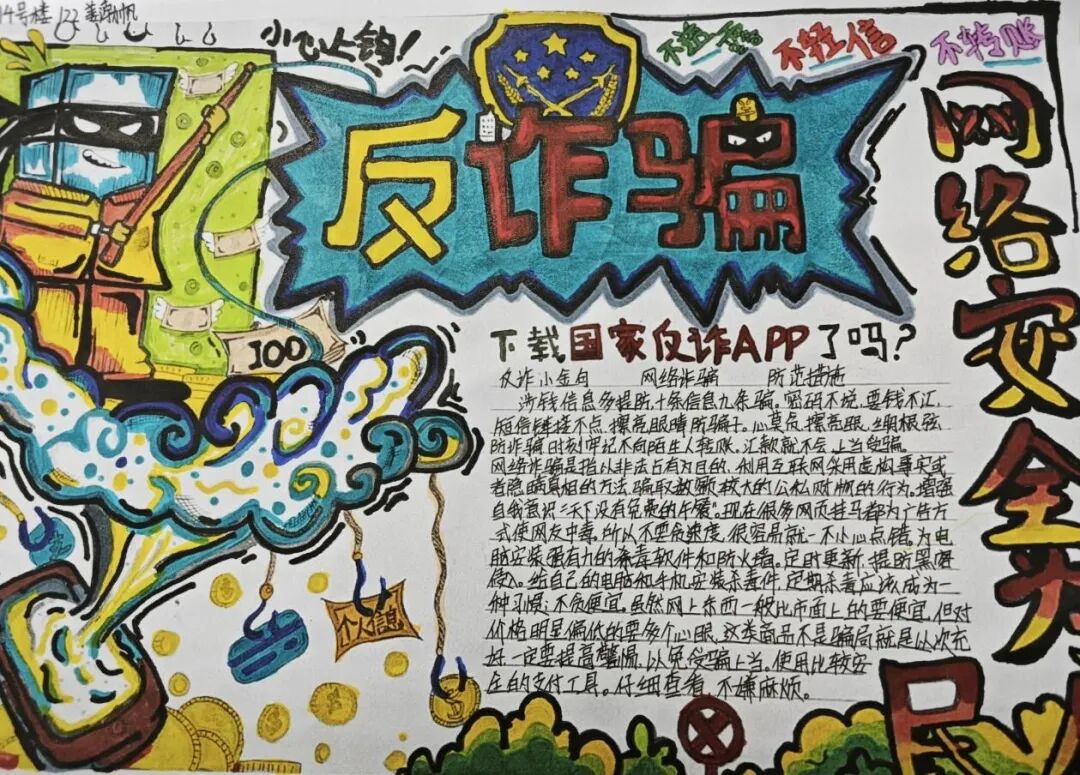 14号楼 123
小心上钩!
不轻信
不转账
反诈骗
网络安全为
民
100
个人信息
下载国家反诈APP了吗?
反诈小金句 网络诈骗 防范措施
涉钱信息多提防,十条信息九条骗。密码不说,要钱不汇,
短信链接不点,擦亮眼睛防骗子。心莫贪,擦亮眼,绷根弦,
防诈骗时刻牢记不向陌生人转账、汇款就不会上当受骗。
网络诈骗是指以非法占有为目的,利用互联网采用虚构事实或
者隐瞒真相的方法,骗取数额较大的公私财物的行为。增强
自我意识:天下没有免费的午餐。现在很多网页挂马都为广告方
式使网友中毒。所以不要贪速度,很容易就一不小心点错,为电
脑安装强有力的杀毒软件和防火墙。定时更新,提防黑客
侵入。给自己的电脑和手机安装杀毒件,定期杀毒应该成为一
种习惯;不贪便宜。虽然网上东西一般比市面上的要便宜,但对
价格明显偏低的要多个心眼,这类商品不是骗局就是以次充
好,一定要提高警惕,以免受骗上当。使用比较安
全的支付工具。仔细查看,不嫌麻烦。